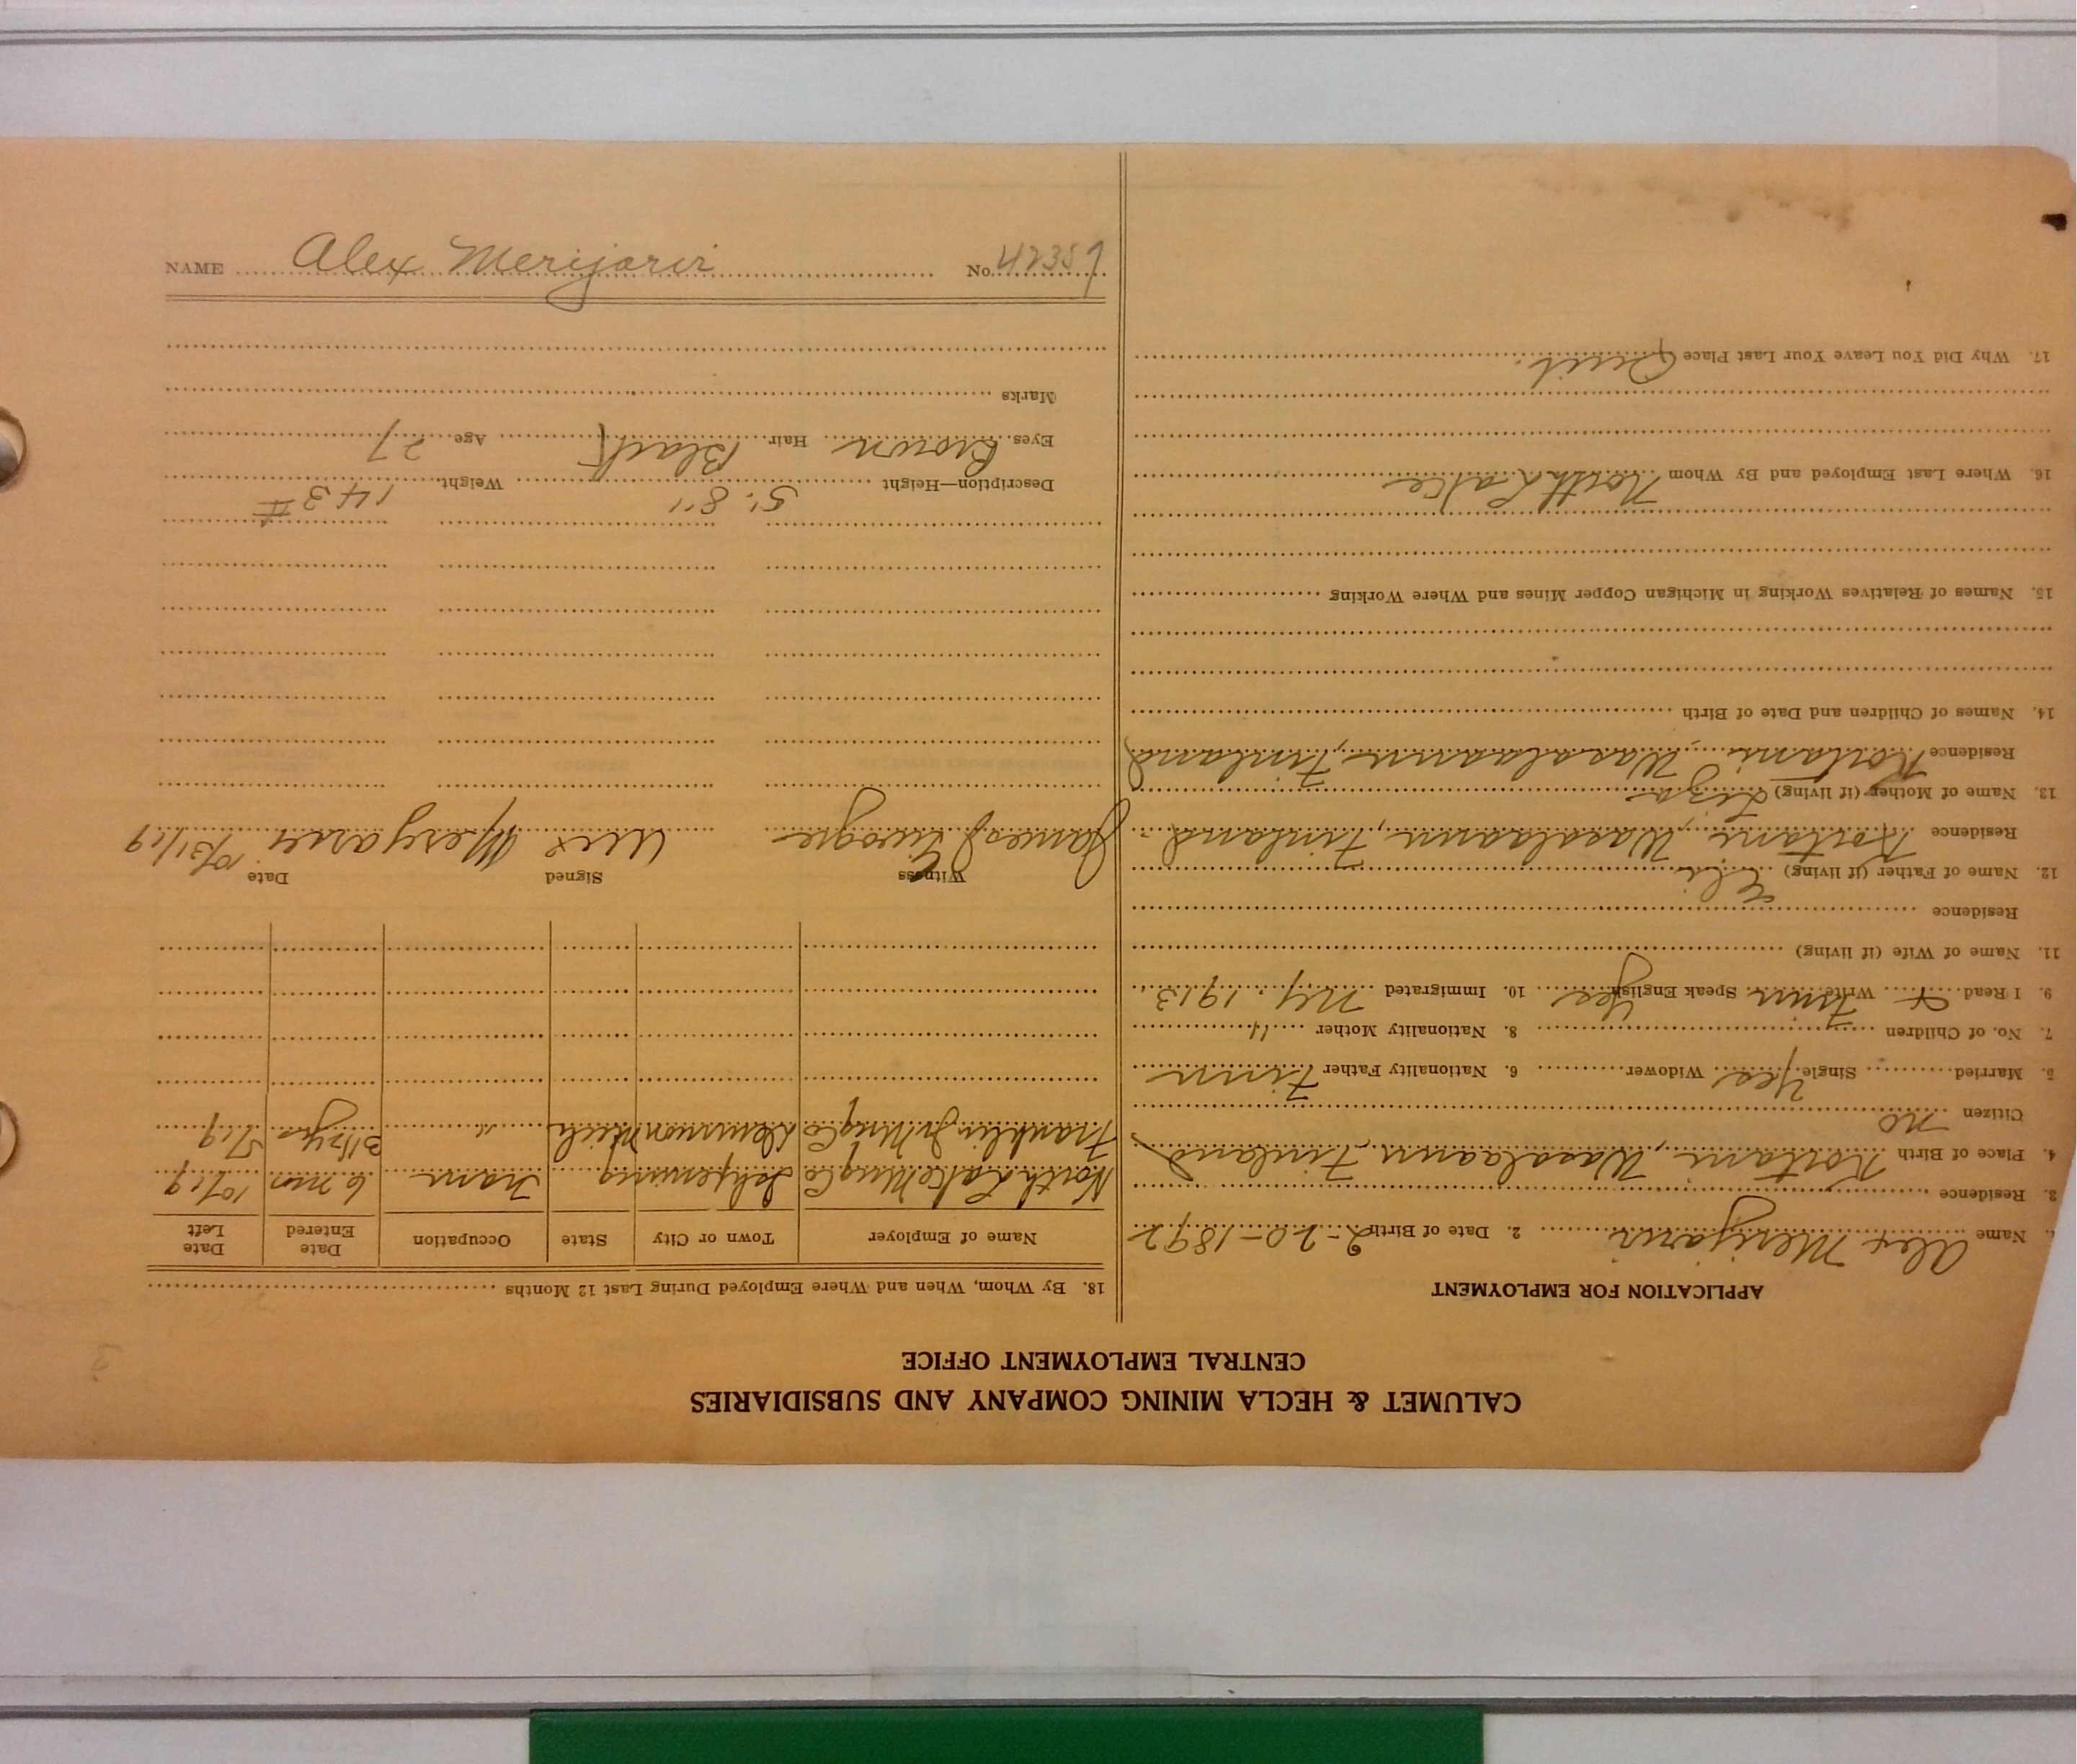 CALUMET & HECLA MINING COMPANY AND SUBSIDIARIES
CENTRAL EMPLOYMENT OFFICE
APPLICATION FOR EMPLOYMENT
1. Name Alex Merijarvi 2. Date of Birth 2-20-1892
3. Residence
4. Place of Birth Kortani, Wasalaann, Finland
Citizen no
5. Married Single Yes Widower 6. Nationality Father Finn
7. No. of Children 8. Nationality Mother "
9. I Read & Write Finn Speak English Yes 10. Immigrated N.Y. 1913
11. Name of Wife (if living)
Residence
12. Name of Father (if living) Eli
Residence Kortani, Wasalaann, Finland
13. Name of Mother (if living) Liza
Residence Kortani, Wasalaann, Finland
14. Names of Children and Date of Birth
15. Names of Relatives Working in Michigan Copper Mines and Where Working
16. Where Last Employed and By Whom North Lake
17. Why Did You Leave Your Last Place Quit.
18. By Whom, When and Where Employed During Last 12 Months
Name of Employer Town or City State Occupation Date Entered Date Left
North Lake Mng Co Ishpeming Tram 6 mos 10/19
Franklin Jr Mng Co Demmon Mich " 3 1/2 yrs 5/19
Witness Signed Date
James J. Alex Meryarvi 10/31/19
Description—Height 5' 8" Weight 143 #
Eyes Brown Hair Black Age 27
Marks
NAME Alex Merijarvi No. 42359